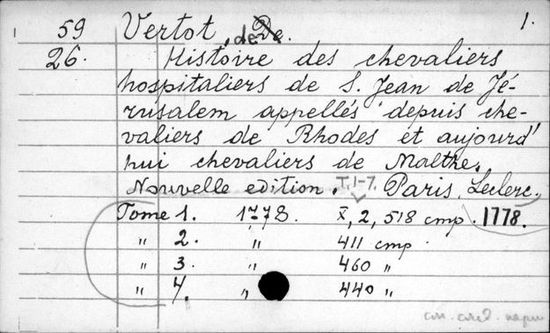 1.
59 Vertot, de.
26. Histoire des chevaliers
hospitaliers de S. Jean de Jé-
rusalem appellés depuis che-
valiers de Rhodes et aujourd'
hui chevaliers de Malthe.
Nouvelle edition. T. 1-7. Paris, Leclerc.
Tome 1. 1778. X, 2, 518 стр. 1778.
" 2. " 411 стр.
" 3. " 460 "
" 4. " 440 "
см. след. карт